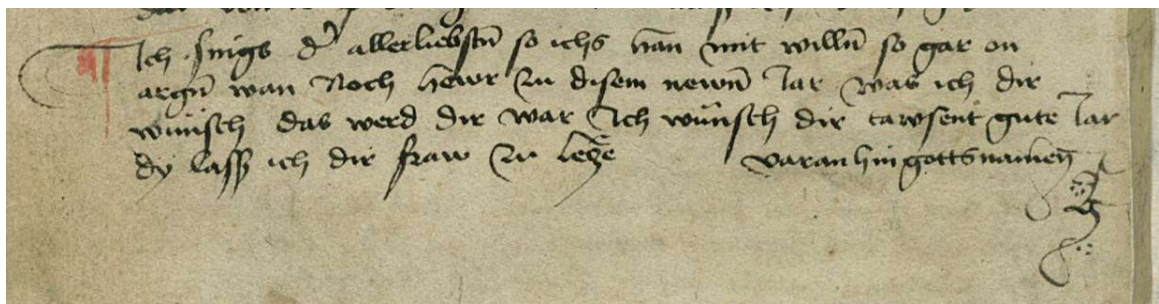 Ich sings d' allerliebstn̄ so ichs han mit willn̄ so gar on
argn̄ wan Noch hewr zu disem newn̄ Jar was ich dir
wünsch das werd dir war Ich wünsch dir tawsent gute Jar
dy lass ich dir fraw zu letze varan hin gotts namen